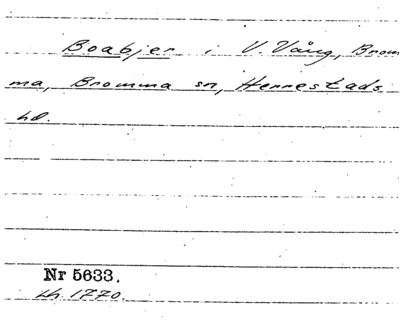 Boabjer i V. Vång, Brom
ma, Bromma sn, Herrestads
hd.
Nr 5633.
Lh. 1770.